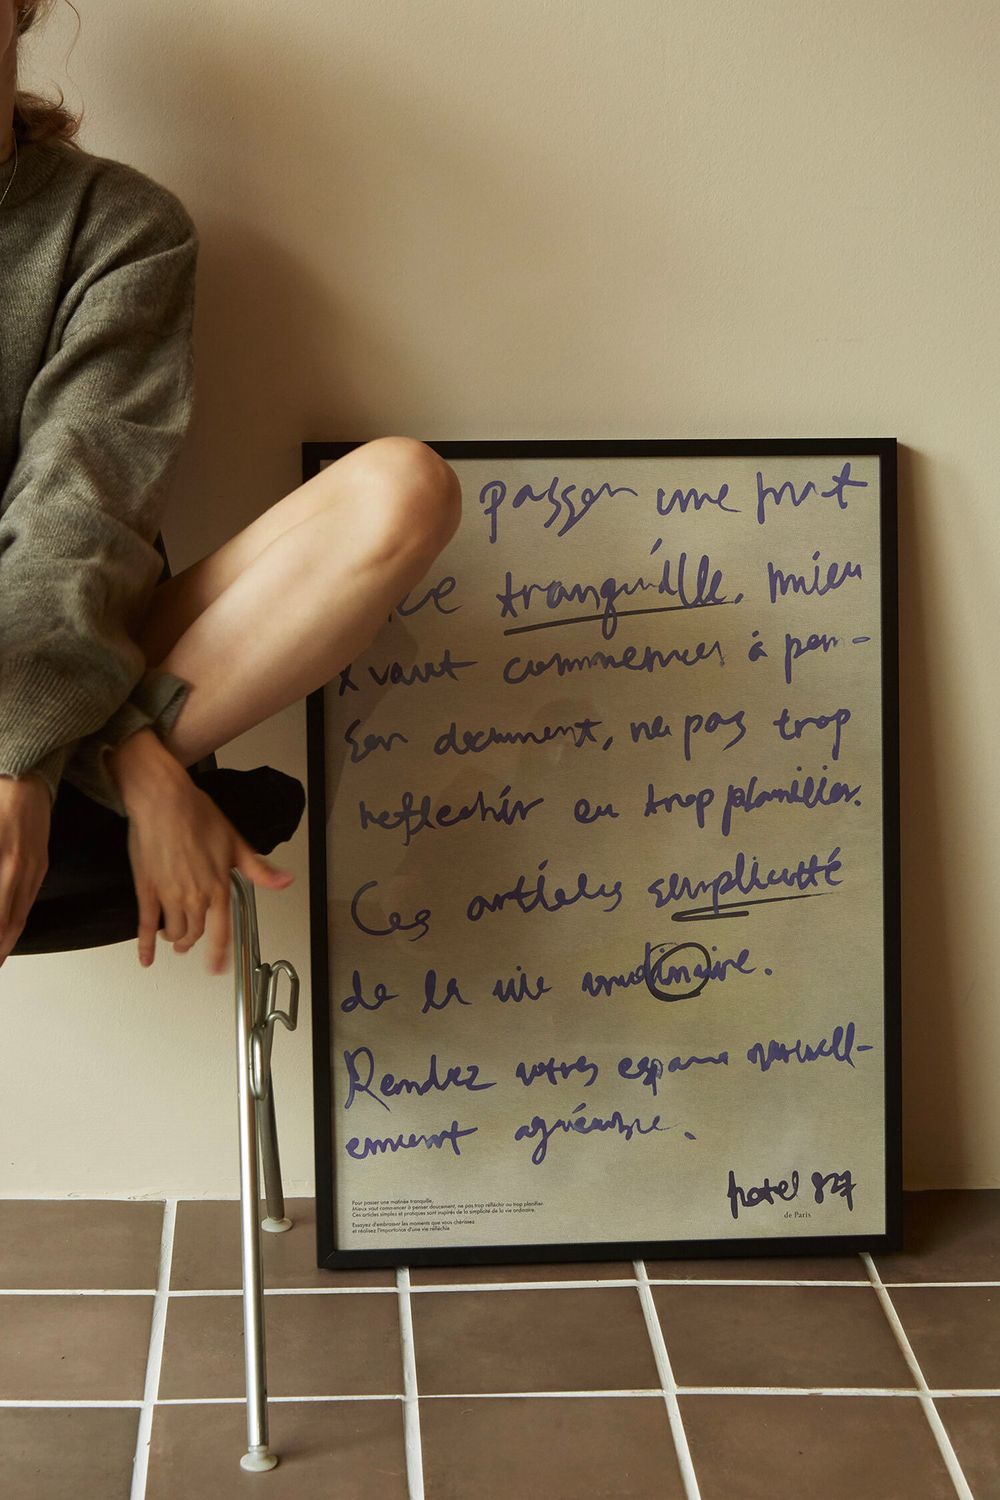 passer une
tranquille, mieu
x vaut commencer à pen-
ser document, ne pas trop
réfléchir ou trop planifier.
Ces articles simplicité
de la vie
Rendez votres espace
ement agréable.
hotel 827
de Paris
Pour passer une matinée tranquille,
Mieux vaut commencer à penser doucement, ne pas trop réfléchir ou trop planifier.
Ces articles simples et pratiques sont inspirés de la simplicité de la vie ordinaire.
Essayez d'embrasser les moments que vous chérissez
et réalisez l'importance d'une vie réfléchie